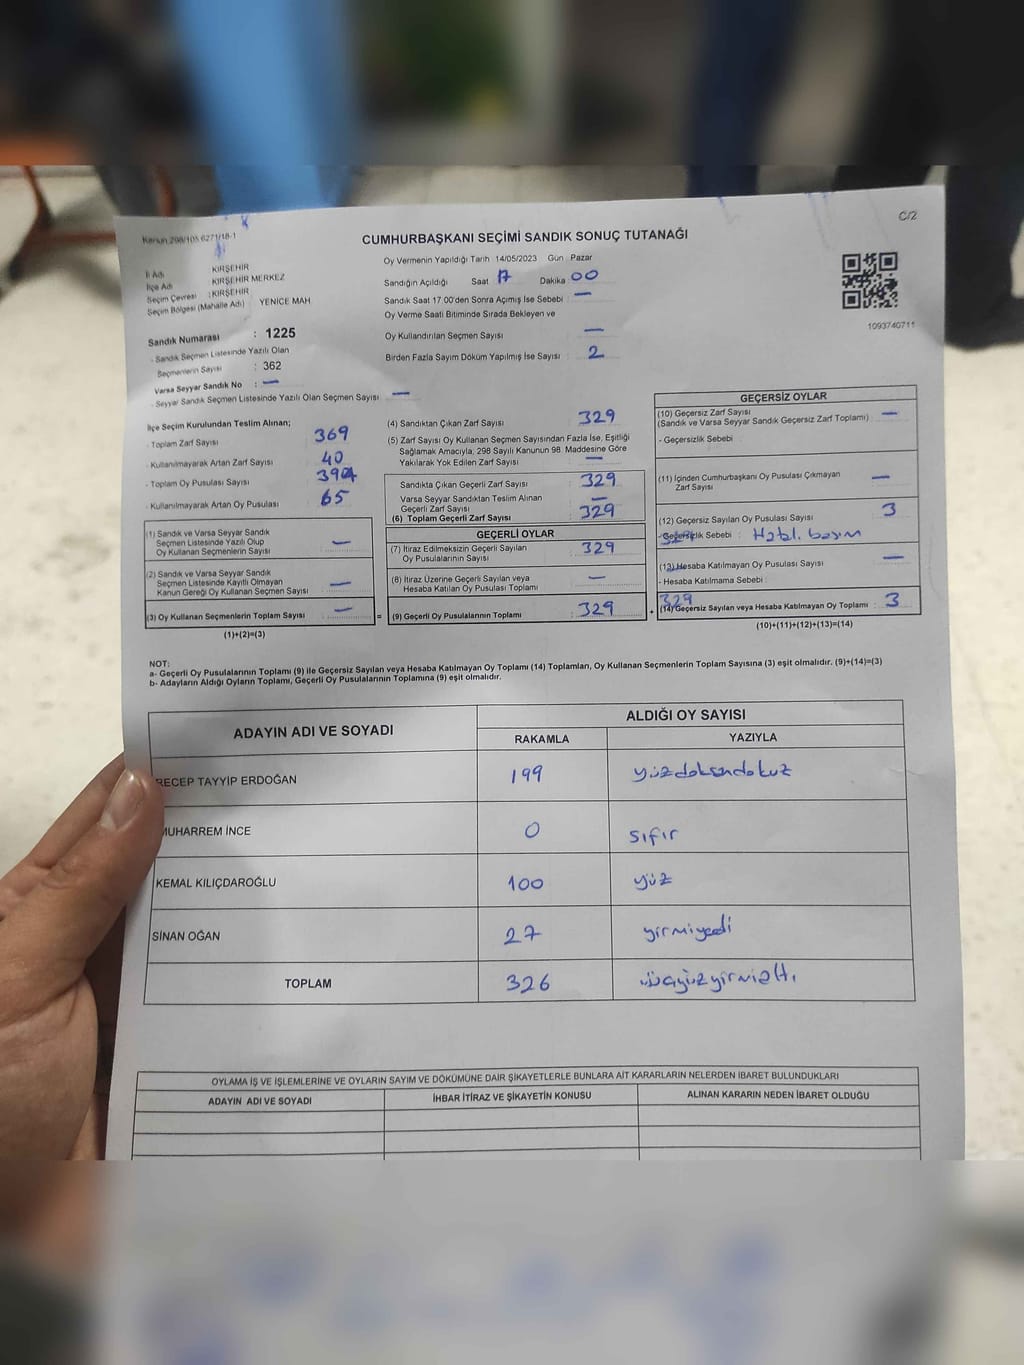 C/2
Kanun:298/105 6271/18-1
CUMHURBAŞKANI SEÇİMİ SANDIK SONUÇ TUTANAĞI
İl Adı : KIRŞEHİR
İlçe Adı : KIRŞEHİR MERKEZ
Seçim Çevresi : KIRŞEHİR
Seçim Bölgesi (Mahalle Adı) YENİCE MAH
Sandık Numarası : 1225
- Sandık Seçmen Listesinde Yazılı Olan
Seçmenlerin Sayısı : 362
Varsa Seyyar Sandık No : —
- Seyyar Sandık Seçmen Listesinde Yazılı Olan Seçmen Sayısı —
Oy Vermenin Yapıldığı Tarih 14/05/2023 Gün Pazar
Sandığın Açıldığı Saat 17 Dakika 00
Sandık Saat 17:00'den Sonra Açımış İse Sebebi : —
Oy Verme Saati Bitiminde Sırada Bekleyen ve
Oy Kullandırılan Seçmen Sayısı —
Birden Fazla Sayım Döküm Yapılmış İse Sayısı : 2
1093740711
İlçe Seçim Kurulundan Teslim Alınan;
- Toplam Zarf Sayısı 369
- Kullanılmayarak Artan Zarf Sayısı 40
- Toplam Oy Pusulası Sayısı
- Kullanılmayarak Artan Oy Pusulası 65
(1) Sandık ve Varsa Seyyar Sandık
Seçmen Listesinde Yazılı Olup
Oy Kullanan Seçmenlerin Sayısı —
(2) Sandık ve Varsa Seyyar Sandık
Seçmen Listesinde Kayıtlı Olmayan
Kanun Gereği Oy Kullanan Seçmen Sayısı —
(3) Oy Kullanan Seçmenlerin Toplam Sayısı —
(1)+(2)=(3)
(4) Sandıktan Çıkan Zarf Sayısı : 329
(5) Zarf Sayısı Oy Kullanan Seçmen Sayısından Fazla İse, Eşitliği
Sağlamak Amacıyla, 298 Sayılı Kanunun 98. Maddesine Göre
Yakılarak Yok Edilen Zarf Sayısı —
Sandıkta Çıkan Geçerli Zarf Sayısı : 329
Varsa Seyyar Sandıktan Teslim Alınan
Geçerli Zarf Sayısı —
(6) Toplam Geçerli Zarf Sayısı : 329
GEÇERLİ OYLAR
(7) İtiraz Edilmeksizin Geçerli Sayılan
Oy Pusulalarının Sayısı : 329
(8) İtiraz Üzerine Geçerli Sayılan veya
Hesaba Katılan Oy Pusulası Toplamı —
= (9) Geçerli Oy Pusulalarının Toplamı : 329 +
GEÇERSİZ OYLAR
(10) Geçersiz Zarf Sayısı
(Sandık ve Varsa Seyyar Sandık Geçersiz Zarf Toplamı) : —
- Geçersizlik Sebebi
(11) İçinden Cumhurbaşkanı Oy Pusulası Çıkmayan
Zarf Sayısı —
(12) Geçersiz Sayılan Oy Pusulası Sayısı : 3
- Geçersizlik Sebebi :
(13) Hesaba Katılmayan Oy Pusulası Sayısı —
- Hesaba Katılmama Sebebi :
329
(14) Geçersiz Sayılan veya Hesaba Katılmayan Oy Toplamı : 3
(10)+(11)+(12)+(13)=(14)
NOT:
a- Geçerli Oy Pusulalarının Toplamı (9) ile Geçersiz Sayılan veya Hesaba Katılmayan Oy Toplamı (14) Toplamları, Oy Kullanan Seçmenlerin Toplam Sayısına (3) eşit olmalıdır. (9)+(14)=(3)
b- Adayların Aldığı Oyların Toplamı, Geçerli Oy Pusulalarının Toplamına (9) eşit olmalıdır.
ADAYIN ADI VE SOYADI ALDIĞI OY SAYISI
RAKAMLA YAZIYLA
RECEP TAYYİP ERDOĞAN 199 yüzdoksandokuz
MUHARREM İNCE 0 sıfır
KEMAL KILIÇDAROĞLU 100 yüz
SİNAN OĞAN 27 yirmiyedi
TOPLAM 326 üçyüzyirmialtı
OYLAMA İŞ VE İŞLEMLERİNE VE OYLARIN SAYIM VE DÖKÜMÜNE DAİR ŞİKAYETLERLE BUNLARA AİT KARARLARIN NELERDEN İBARET BULUNDUKLARI
ADAYIN ADI VE SOYADI İHBAR İTİRAZ VE ŞİKAYETİN KONUSU ALINAN KARARIN NEDEN İBARET OLDUĞU